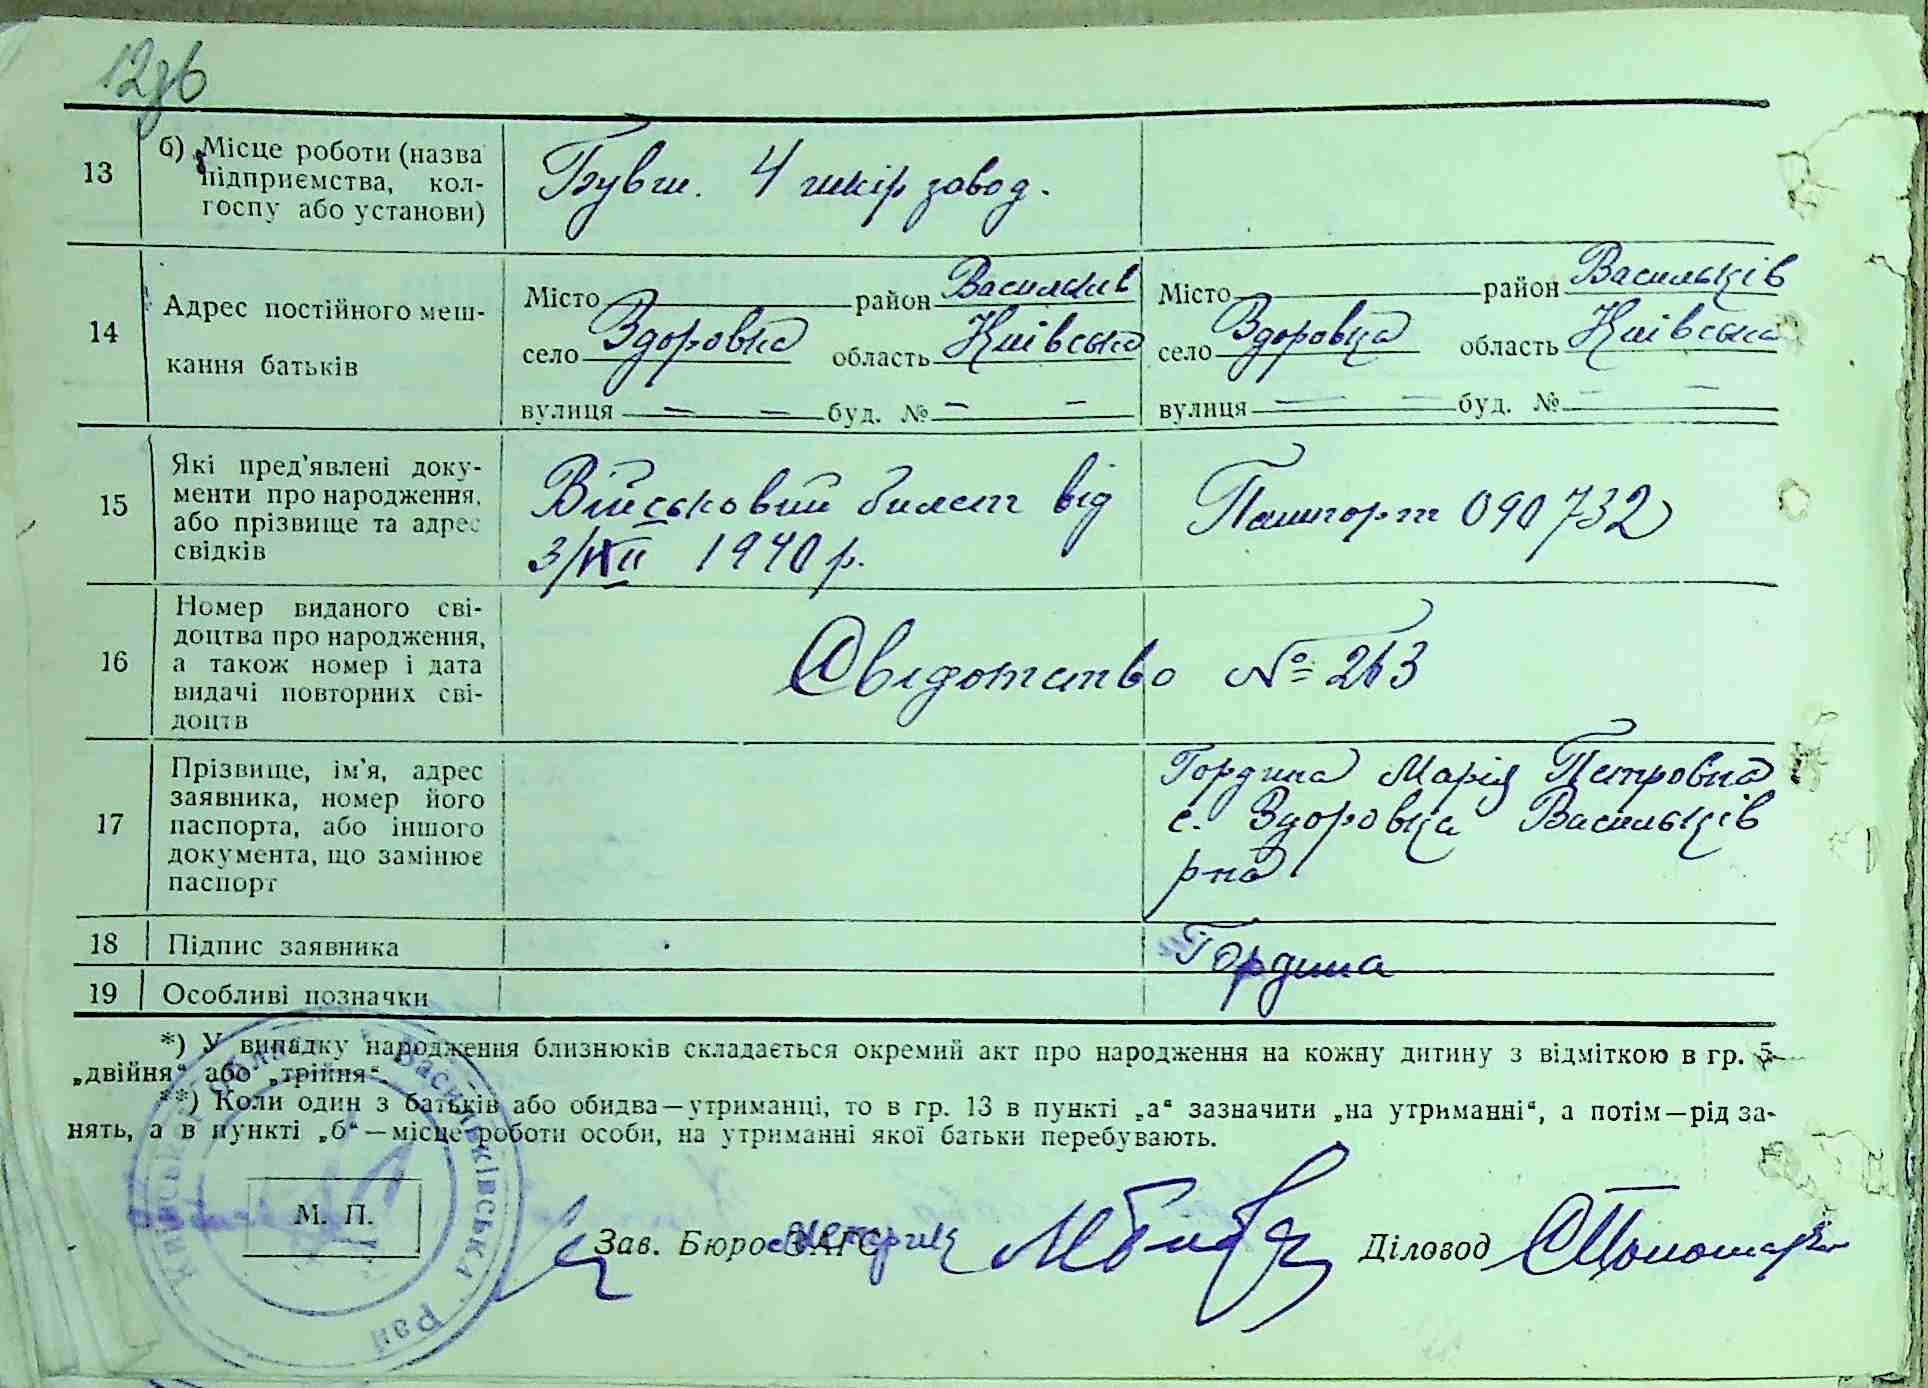 13
б) Місце роботи (назва
підприємства, кол-
госпу або установи)
Бувш. 4 шкір завод.
14
Адрес постійного меш-
кання батьків
Місто район Васильків
село Здоровка область Київська
вулиця — — буд. № — —
Місто район Васильків
село Здоровка область Київська
вулиця — — буд. № — —
15
Які пред'явлені доку-
менти про народження,
або прізвище та адрес
свідків
Військовий билет від
3/XII 1940 р.
Пашпорт 090732
16
Номер виданого сві-
доцтва про народження,
а також номер і дата
видачі повторних сві-
доцтв
Свідотство № 263
17
Прізвище, ім'я, адрес
заявника, номер його
паспорта, або іншого
документа, що замінює
паспорт
Гордина Марія Петровна
с. Здоровка Васильків
р-на
18
Підпис заявника
Гордина
19
Особливі позначки
*) У випадку народження близнюків складається окремий акт про народження на кожну дитину з відміткою в гр. 5
„двійня“ або „трійня“.
**) Коли один з батьків або обидва—утриманці, то в гр. 13 в пункті „а“ зазначити „на утриманні“, а потім—рід за-
нять, а в пункті „б“—місце роботи особи, на утриманні якої батьки перебувають.
М. П.
Зав. Бюро ЗАГС
Діловод